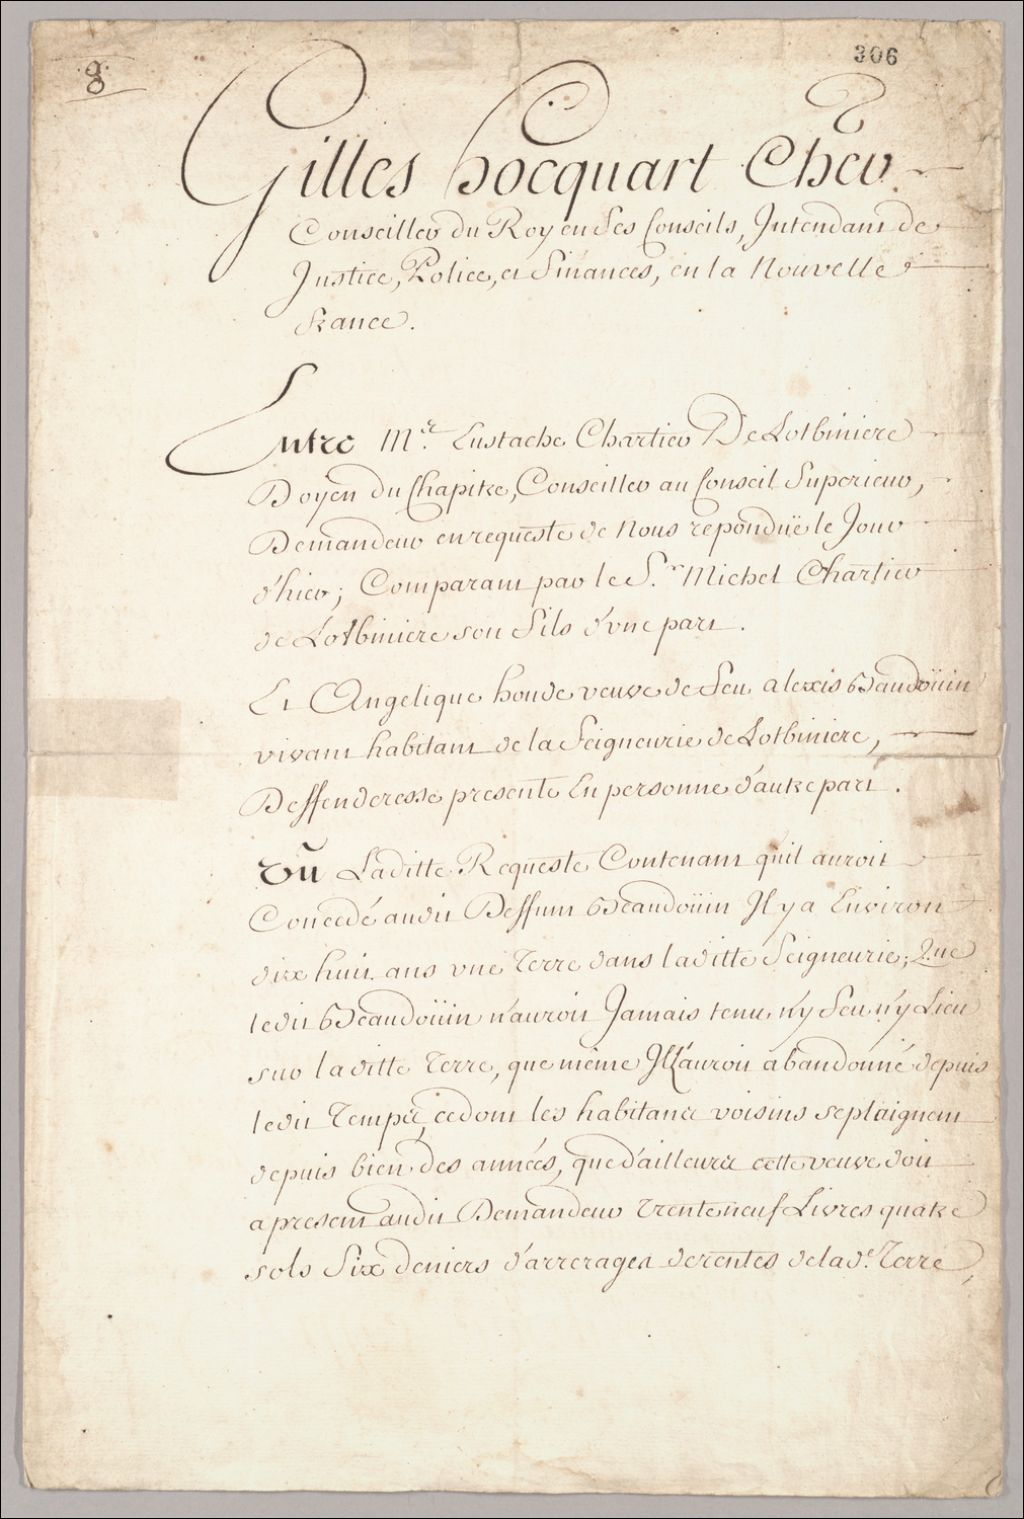 8
306
Gilles hocquart Chev.
Conseiller du Roy en Ses Conseils, Intendant de
Justice, Police, et Finances, en la Nouvelle
france.
Entre Mre. Eustache Chartier De Lotbiniere
Doyen du Chapitre, Conseiller au Conseil Superieur,
Demandeur en requeste de Nous repondüe le Jour
d'hier; Comparant par le Sr. Michel Chartier
de Lotbiniere son fils d'vne part.
Et Angelique houde veuve de feu alexis Beaudoüin
vivant habitant de la Seigneurie de Lotbiniere,
Deffenderesse presente En personne d'autre part.
Vû Laditte Requeste Contenant qu'il auroit
Concedé audit Deffunt Beaudoüin Il y a Environ
dix huit ans vne Terre dans laditte Seigneurie; Que
ledit Beaudoüin n'auroit Jamais tenu n'y feu n'y Lieu
sur laditte Terre, que même Il l'auroit abandonné depuis
ledit Temps, ce dont les habitans voisins se plaignent
depuis bien des années, que d'ailleurs cette veuve doit
a present audit Demandeur Trente neuf Livres quatre
sols Six deniers d'arrerages de rentes de lade. Terre,